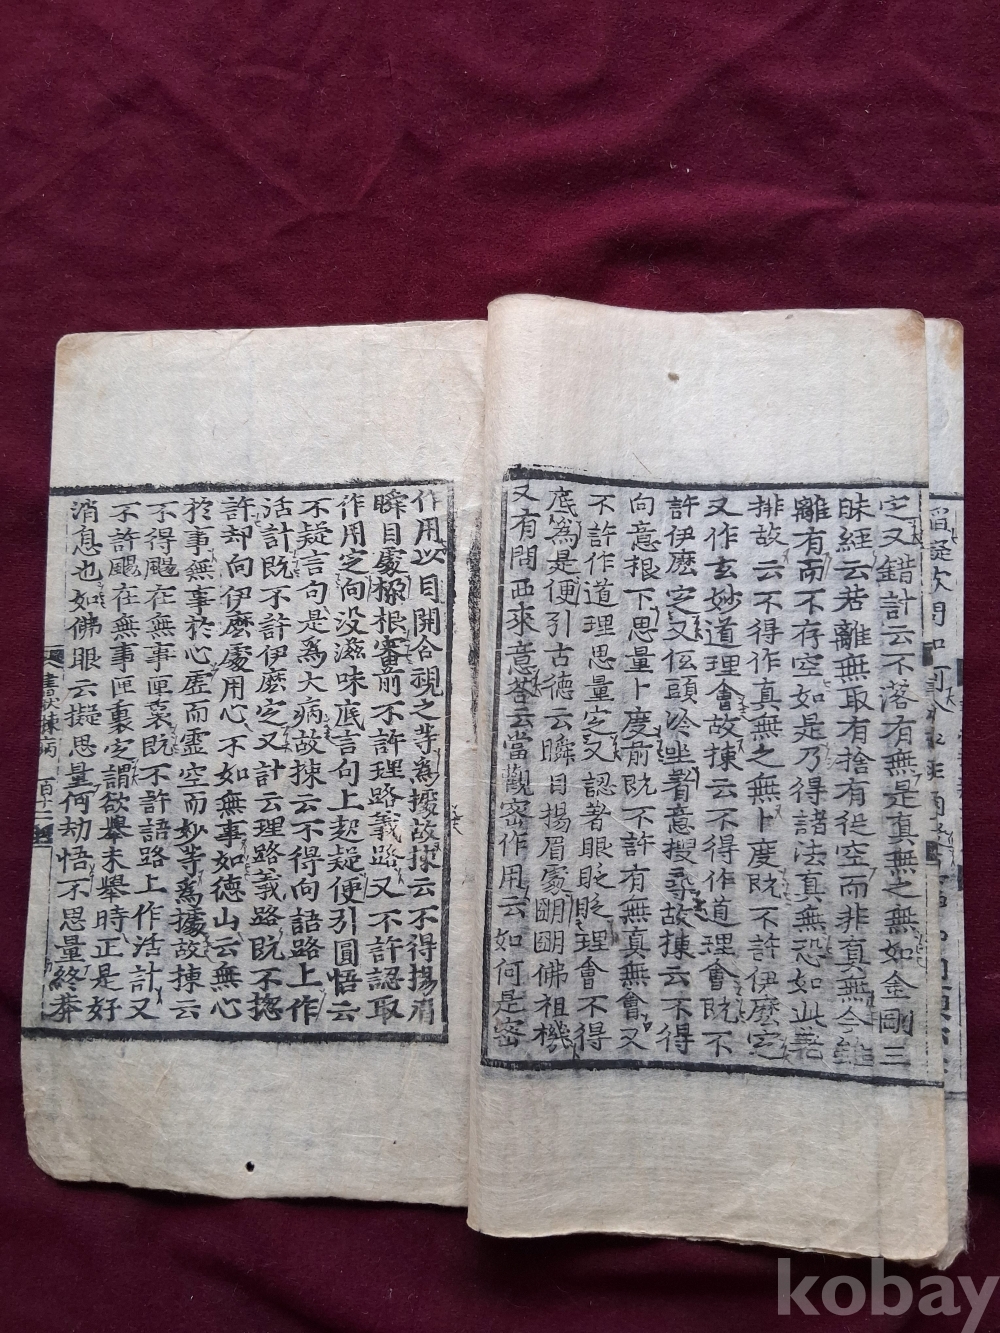 定又錯計云不落有無是真無之無如金剛三
昧經云若離無取有捨有從空而非真無今雖
離有而不存空如是乃得諸法真無恐如此差
排故云不得作真無之無卜度旣不許伊麽定
又作玄妙道理會故揀云不得作道理會旣不
許伊麽定又伍頭冷坐着意搜尋故揀云不得
向意根下思量卜度前旣不許有無真無會又
不許作道理思量定又認著眼眨眨理會不得
底爲是便引古德云瞬目揚眉處明明佛祖機
又有問西來意答云當觀密作用云如何是密
作用以目開合視之等爲據故揀云不得揚眉
瞬目處挅根當前不許理路義路又不許認取
作用定向没滋味底言句上起疑便引圓悟云
不疑言句是爲大病故揀云不得向語路上作
活計旣不許伊麽定又計云理路義路旣不揔
許却向伊麽處用心不如無事如德山云無心
於事無事於心虛而靈空而妙等爲據故揀云
不得颺在無事匣裏旣不許語路上作活計又
不許颺在無事匣裏定謂欲擧未擧時正是好
消息也如佛眼云擬思量何劫悟不思量終莽
書狀揀病 百十一
kobay